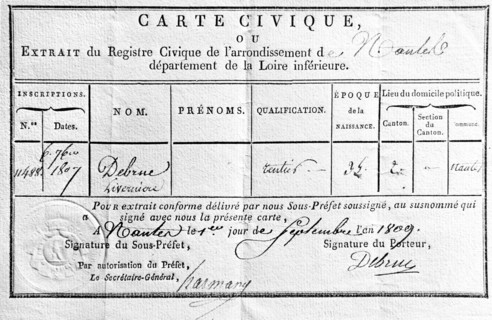 CARTE CIVIQUE,
OU
EXTRAIT du Registre Civique de l'arrondissement de Nantes
département de la Loire inférieure.
INSCRIPTIONS.
N.os
Dates.
NOM.
PRÉNOMS.
QUALIFICATION.
ÉPOQUE
de la
NAISSANCE.
Lieu du domicile politique.
Canton.
Section
du
Canton.
Commune
1807
Debrue
rentier
Nantes
POUR extrait conforme délivré par nous Sous-Préfet soussigné, au susnommé qui
a signé avec nous la présente carte,
A Nantes le 1er jour de Septembre l'an 1809.
Signature du Sous-Préfet,
Signature du Porteur,
Par autorisation du Préfet,
Le Secrétaire-Général,
Debrue